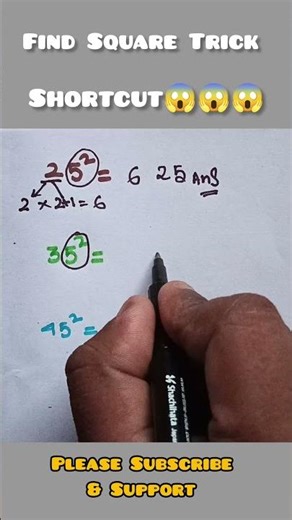 FIND SQUARE TRICK
SHORTCUT😱😱😱
25² = 6 25 Ans
2 × 2+1 = 6
35² =
45² =
Shachihata
PLEASE SUBSCRIBE
& SUPPORT